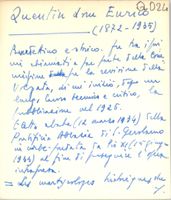 Quentin dom Enrico
(1872-1935)
Benedettino e storico. fra i più
noti fu parte della Com
missione per la revisione della
Volgata, di cui iniziò, dopo un
lungo lavoro tecnico e critico, la
pubblicazione nel 1925.
Eletto abate (12 marzo 1934) della
Pontificia Abbazia di S. Gerolamo
in urbe fondata da Pio XI (15-6-
1933) al fine di proseguire l'opera
intrapresa.
= Les martyrologes historiques